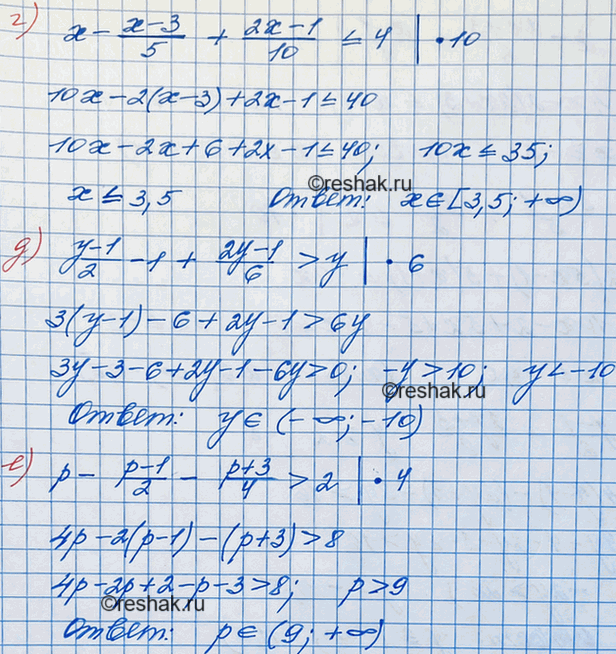 г) x - (x-3)/5 + (2x-1)/10 ≤ 4 | · 10
10x - 2(x-3) + 2x - 1 ≤ 40
10x - 2x + 6 + 2x - 1 ≤ 40; 10x ≤ 35;
©reshak.ru
x ≤ 3,5 Ответ: x ∈ [3,5; +∞)
д) (y-1)/2 - 1 + (2y-1)/6 > y | · 6
3(y-1) - 6 + 2y - 1 > 6y
3y - 3 - 6 + 2y - 1 - 6y > 0; -y > 10; y < -10
©reshak.ru
Ответ: y ∈ (-∞; -10)
е) p - (p-1)/2 - (p+3)/4 > 2 | · 4
4p - 2(p-1) - (p+3) > 8
4p - 2p + 2 - p - 3 > 8; p > 9
©reshak.ru
Ответ: p ∈ (9; +∞)